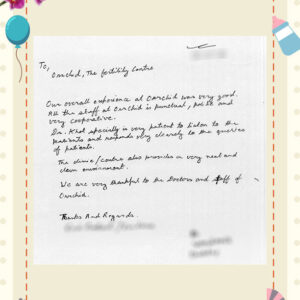 To,
Oarchid, The fertility Centre
Our overall experience at Oarchid was very good.
All the staff at Oarchid is punctual, polite and
very cooperative.
Dr. Khot specially is very patient to listen to the
patients and responds very clearly to the queries
of patients.
The clinic/centre also provides a very neat and
clean environment.
We are very thankful to the Doctors and staff of
Oarchid.
Thanks And Regards.